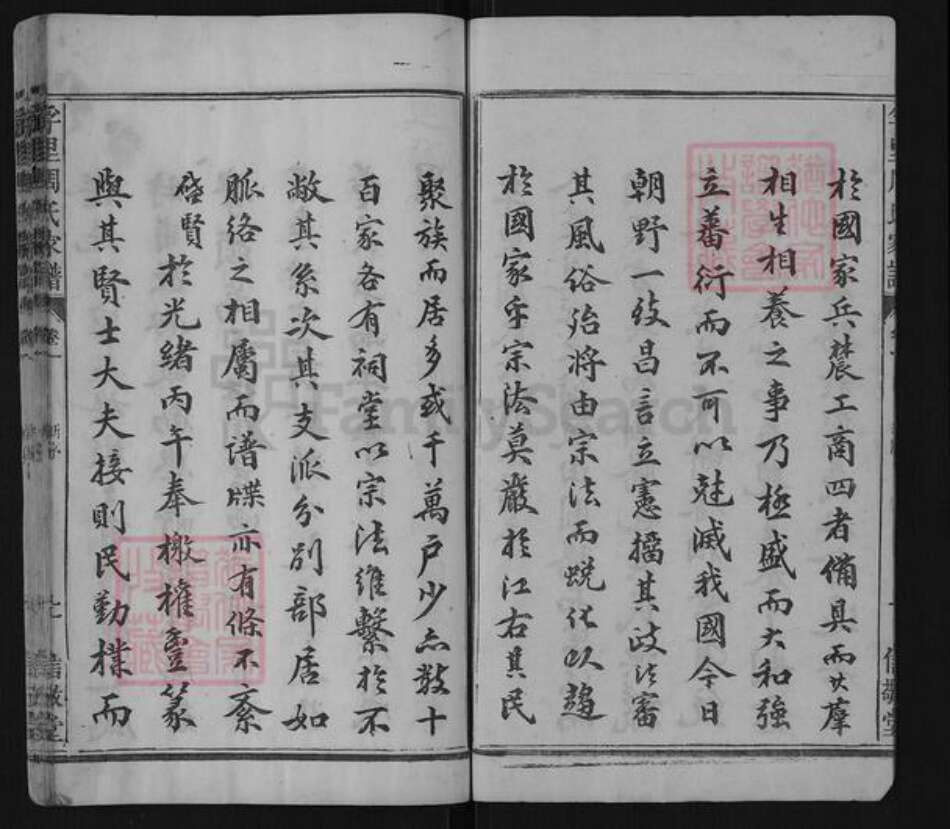 於國家兵農工商四者備具而其羣
相生相養之事乃極盛而大和強
立蕃衍而不可以尅滅我國今日
朝野一致昌言立憲摇其政法審
其風俗殆將由宗法而蛻化以趨
於國家乎宗法莫嚴於江右其民
聚族而居多或千萬戶少亦數十
百家各有祠堂以宗法維繫於不
敝其系次其支派分別部居如
脈絡之相屬而譜牒亦有條不紊
啓賢於光緒丙午奉檄權豐篆
與其賢士大夫接則民勤樸而
里周氏家譜
卷一
新序
七
信敬堂
FamilySearch